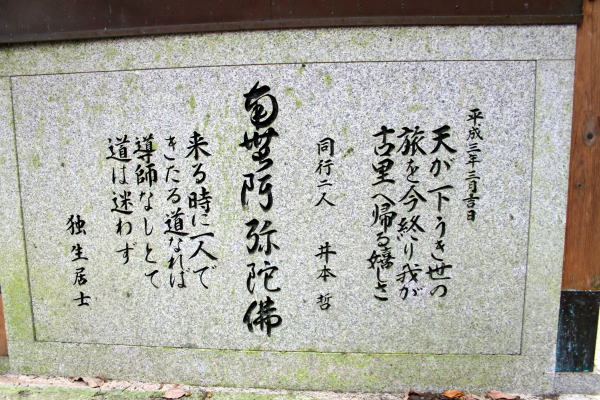 平成三年三月吉日
天が下うき世の
旅を今終り我が
古里へ帰る嬉しさ
同行二人 井本哲
南無阿弥陀佛
来る時に一人で
きたる道なれば
導師なしとて
道は迷わず
独生居士